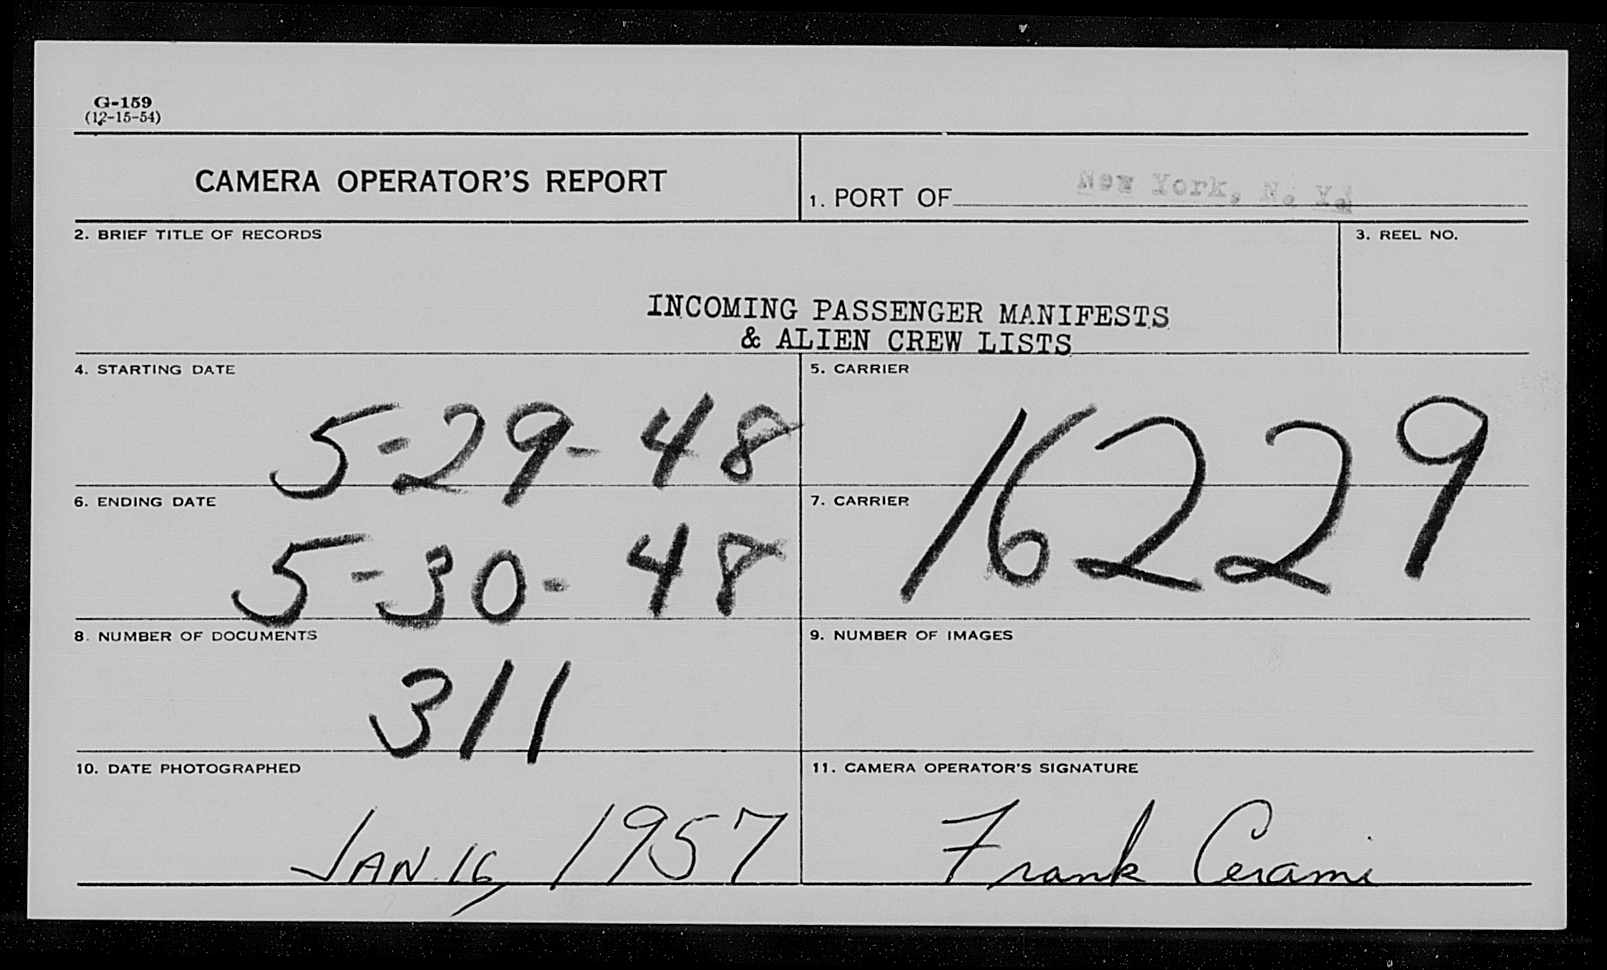 G-159
(12-15-54)
CAMERA OPERATOR'S REPORT
1. PORT OF New York, N. Y.
2. BRIEF TITLE OF RECORDS
3. REEL NO.
INCOMING PASSENGER MANIFESTS
& ALIEN CREW LISTS
4. STARTING DATE
5-29-48
5. CARRIER
16229
6. ENDING DATE
5-30-48
7. CARRIER
8. NUMBER OF DOCUMENTS
311
9. NUMBER OF IMAGES
10. DATE PHOTOGRAPHED
JAN. 16, 1957
11. CAMERA OPERATOR'S SIGNATURE
Frank Cerami